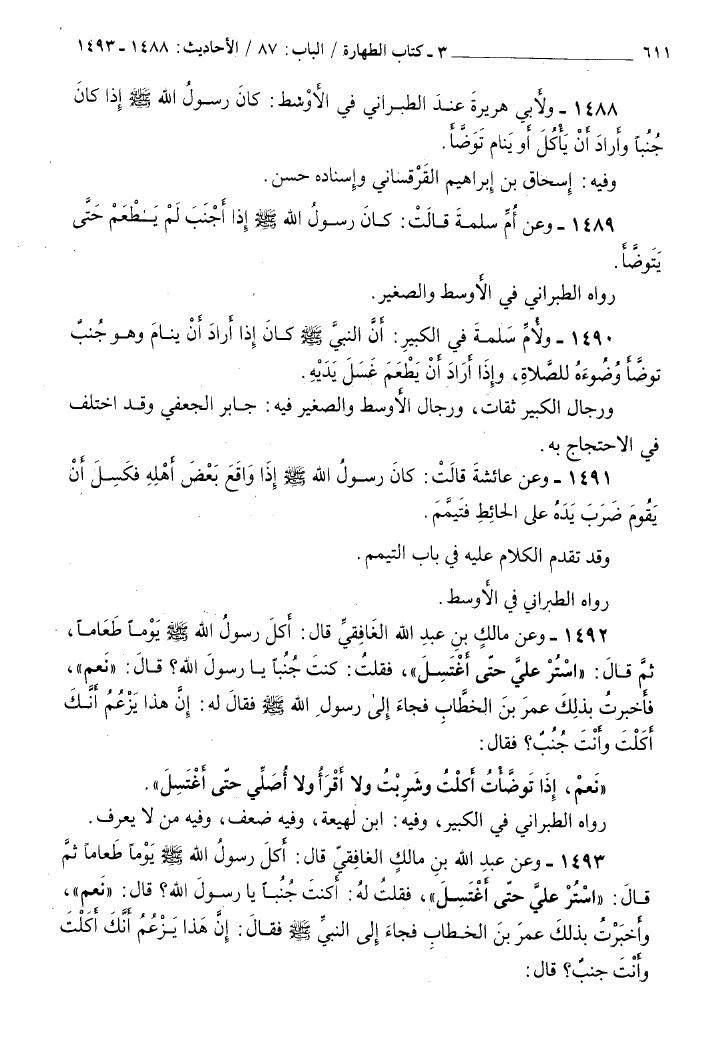 ٦١١ ـــــــــــــــــ ٣ ـ كتاب الطهارة / الباب: ٨٧ / الأحاديث: ١٤٨٨ ـ ١٤٩٣
١٤٨٨ ـ ولأبي هريرةَ عنـدَ الطبـراني في الأَوْسَط: كانَ رسـولُ الله ﷺ إِذا كانَ
جُنُباً وأَرادَ أَنْ يَأْكُلَ أَو يَنام تَوَضَّأَ.
وفيه: إسحاق بن إبراهيم القَرْقساني وإسناده حسن.
١٤٨٩ ـ وعن أُمِّ سلمـةَ قـالَتْ: كـانَ رسـولُ الله ﷺ إِذا أَجْنَبَ لَمْ يَـطْعَمْ حَتَّى
يَتَوضَّأَ.
رواه الطبراني في الأوسط والصغير.
١٤٩٠ ـ ولأُمِّ سَلمـةَ في الكبيرِ: أَنَّ النبيَّ ﷺ كـانَ إِذا أَرادَ أَنْ ينـامَ وهـو جُنبٌ
توضَّأَ وُضُوءَهُ للصَّلاةِ، وإِذَا أَرَادَ أَنْ يَطْعَمَ غَسَلَ يَدَيْهِ.
ورجال الكبير ثقات، ورجال الأوسط والصغير فيه: جـابر الجعفي وقـد اختلف
في الاحتجاج به.
١٤٩١ ـ وعن عائشةَ قالَتْ: كانَ رسـولُ الله ﷺ إِذَا وَاقَعَ بَعْضَ أَهْلِهِ فكَسِـلَ أَنْ
يَقُومَ ضَرَبَ يَدَهُ على الحائِطِ فتَيمَّمَ.
وقد تقدم الكلام عليه في باب التيمم.
رواه الطبراني في الأوسط.
١٤٩٢ ـ وعن مالكٍ بنِ عبدِ الله الغَافِقيِّ قال: أَكلَ رسولُ الله ﷺ يَوْمـاً طَعَامـاً،
ثمَّ قـالَ: «اسْتُرْ عليَّ حتَّى أَغْتَسِـلَ»، فقلتُ: كنتَ جُنُباً يـا رسولَ الله؟ قـالَ: «نَعم»،
فأَخبرتُ بذلِكَ عمرَ بنَ الخطَّابِ فجاءَ إلىٰ رسولِ الله ﷺ فقالَ له: إِنَّ هذا يَزْعُمُ أَنَّـكَ
أَكَلْتَ وأَنْتَ جُنُبٌ؟ فقال:
«نَعمْ، إِذَا تَوضَّأْتُ أَكَلْتُ وشَرِبْتُ ولا أَقْرَأُ ولا أُصَلِّي حتَّى أَغْتَسِلَ».
رواه الطبراني في الكبير، وفيه: ابن لهيعة، وفيه ضعف، وفيه من لا يعرف.
١٤٩٣ ـ وعن عبدِ الله بنِ مالكٍ الغافقيّ قال: أَكَلَ رسولُ الله ﷺ يَوْماً طَعاماً ثمَّ
قـالَ: «اسْتُرْ عليَّ حتَّى أَغْتَسِـلَ»، فقلتُ لهُ: أَكنتَ جُنُبـاً يا رسـولَ الله؟ قال: «نَعم»،
وأَخبَرْتُ بذلكَ عمرَ بنَ الخـطابِ فجاءَ إلى النبيِّ ﷺ فقـالَ: إِنَّ هَذا يَـزْعُمُ أَنَّكَ أَكَلْتَ
وأَنْتَ جنبٌ؟ قال: